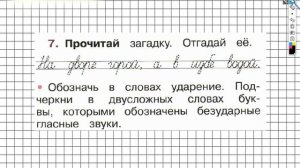 7. Прочитай загадку. Отгадай её.
На дворе горой, а в избе водой.
Обозначь в словах ударение. Под-
черкни в двусложных словах бук-
вы, которыми обозначены безударные
гласные звуки.